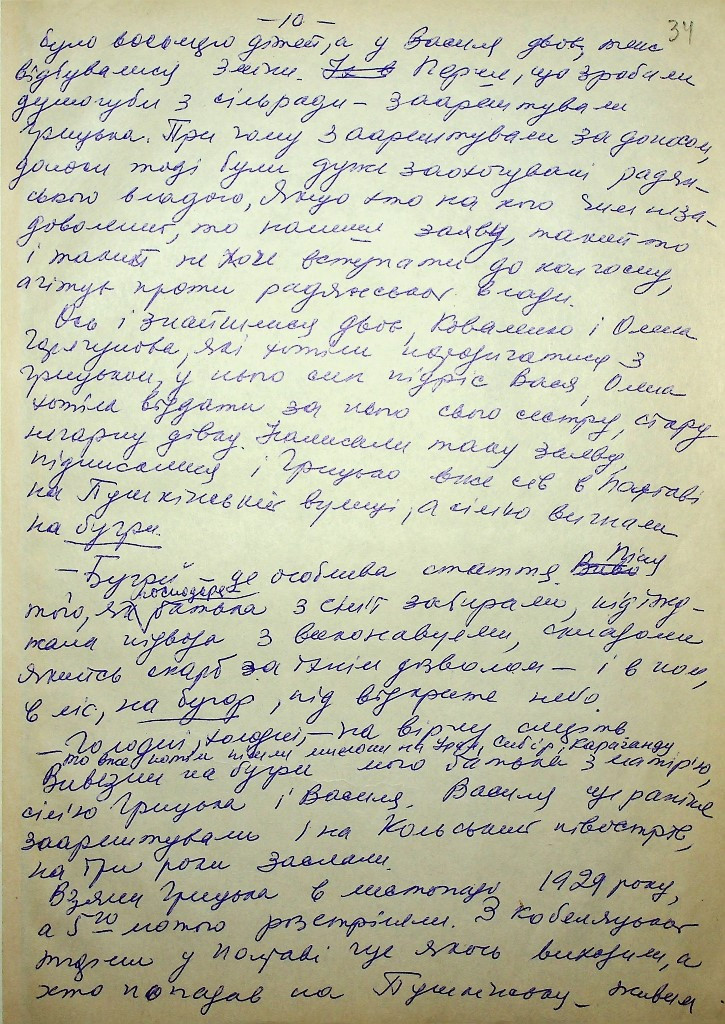 – 10 –
34
було восьмеро дітей, а у Василя двоє, теж
відбувалися зміни. Перше, що зробили
душогуби з сільради – заарештували
Грицька. При чому заарештували за доносом,
доноси тоді були дуже заохочувані радян-
ською владою, якщо хто на кого чим неза-
доволений, то пише заяву, такий то
і такий не хоче вступати до колгоспу,
агітує проти радянської влади.
Ось і знайшлися двоє, Коваленко і Олена
Горягунова, які хотіли породичатися з
Грицьком, у нього син підріс Вася, Олена
хотіла віддати за нього свою сестру, стару
негарну дівку. Написали таку заяву,
підписалися і Грицько вже сів в Полтаві
на Пушкінській вулиці, а сім'ю вигнали
на бугри.
– Бугри – це особлива стаття. Після
того, як господаря батька з сім'ї забирали, під'їжд-
жала підвода з виконавцями, складали
якийсь скарб за їхнім дозволом – і в поле,
в ліс, на бугор, під відкрите небо.
– Голодні, холодні, – на вірну смерть
то вже потім пішли висилки на Урал, Сибір, Караганду
Вивезли на бугри мого батька з матір'ю,
сім'ю Грицька і Василя. Василя ще раніше
заарештували і на Кольський півострів,
на три роки заслали.
Взяли Грицька в листопаді 1929 року,
а 5го лютого розстріляли. З Кобеляцької
тюрми у Полтаві ще якось виходили, а
хто попадав на Пушкінську – живим